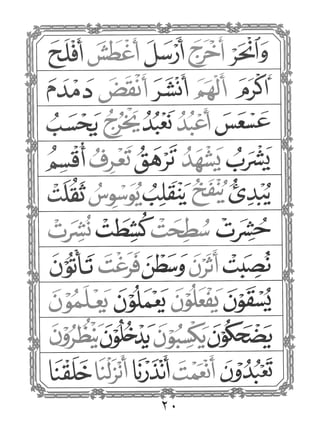 وَانْحَرْ أَخْرَجَ أَرْسَلَ أَغْطَشَ أَفْلَحَ
أَكْرَمَ أَلْهَمَ أَنْشَرَ أَنْقَضَ دَمْدَمَ
عَسْعَسَ أَعْبُدُ نَعْبُدُ يَخْرُجُ يَحْسَبُ
يَشْرَبُ يَشْهَدُ تَرْهَقُ تَعْرِفُ أُقْسِمُ
يُبْدِئُ يُنْفَخُ يَنْقَلِبُ يُوَسْوِسُ ثَقُلَتْ
حُشِرَتْ سُطِحَتْ كُشِطَتْ نُشِرَتْ
نُصِبَتْ أَثَرْنَ وَسَطْنَ فَرَغْتَ تَأْتُوْنَ
يُسْقَوْنَ يَفْعَلُوْنَ يَعْمَلُوْنَ يَعْلَمُوْنَ
يَضْحَكُوْنَ يَكْسِبُوْنَ يَدْخُلُوْنَ يَنْظُرُوْنَ
تَعْبُدُوْنَ أَنْعَمْتَ أَنْذَرْنَا أَنْزَلْنَا خَلَقْنَا
٢٠